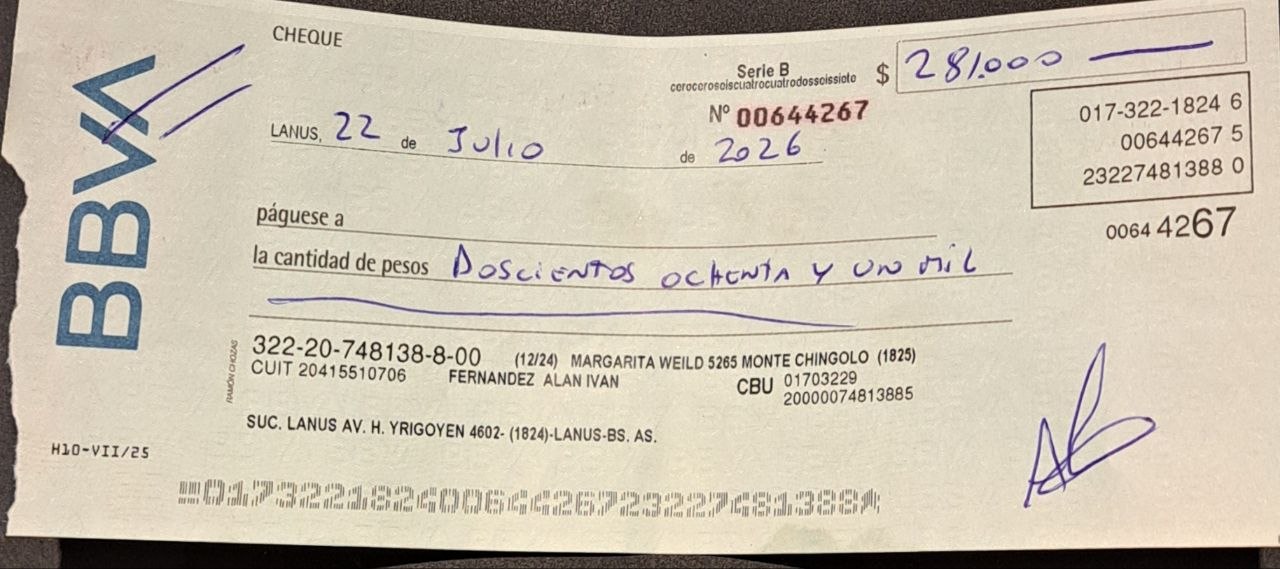 BBVA
CHEQUE
Serie B
cerocoroseiscuatrocuatrodosseissiete
$ 281.000
Nº 00644267
017-322-1824 6
00644267 5
23227481388 0
0064 4267
LANUS, 22 de Julio de 2026
páguese a
la cantidad de pesos Doscientos ochenta y un mil
RAMÓN CHOZAS
322-20-748138-8-00 (12/24) MARGARITA WEILD 5265 MONTE CHINGOLO (1825)
CUIT 20415510706 FERNANDEZ ALAN IVAN CBU 01703229
20000074813885
SUC. LANUS AV. H. YRIGOYEN 4602- (1824)-LANUS-BS. AS.
H10-VII/25
01732218240064426723227481388